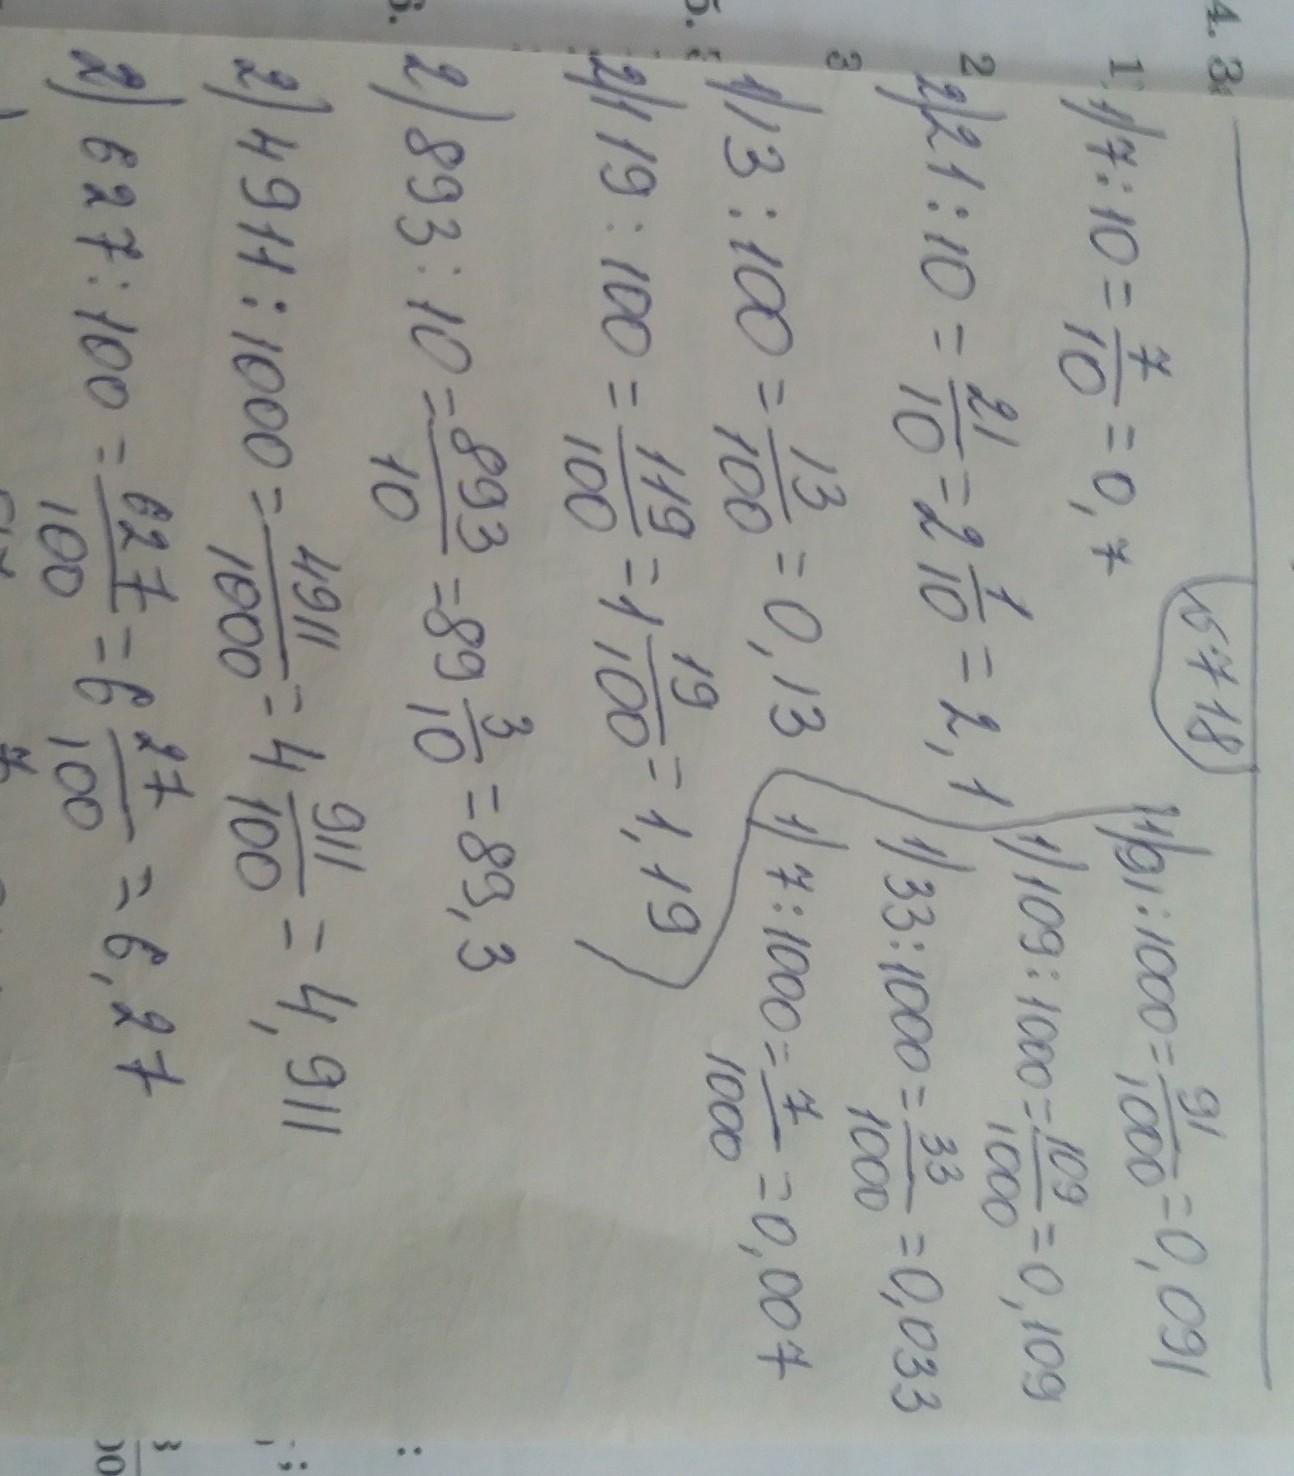 4. 3
1
2
3
5.
6.
6718
1) 7 : 10 = 7/10 = 0,7
2) 21 : 10 = 21/10 = 2 1/10 = 2,1
1) 13 : 100 = 13/100 = 0,13
2) 119 : 100 = 119/100 = 1 19/100 = 1,19
2) 893 : 10 = 893/10 = 89 3/10 = 89,3
2) 4911 : 1000 = 4911/1000 = 4 911/100 = 4,911
2) 627 : 100 = 627/100 = 6 27/100 = 6,27
1) 91 : 1000 = 91/1000 = 0,091
1) 109 : 1000 = 109/1000 = 0,109
1) 33 : 1000 = 33/1000 = 0,033
1) 7 : 1000 = 7/1000 = 0,007